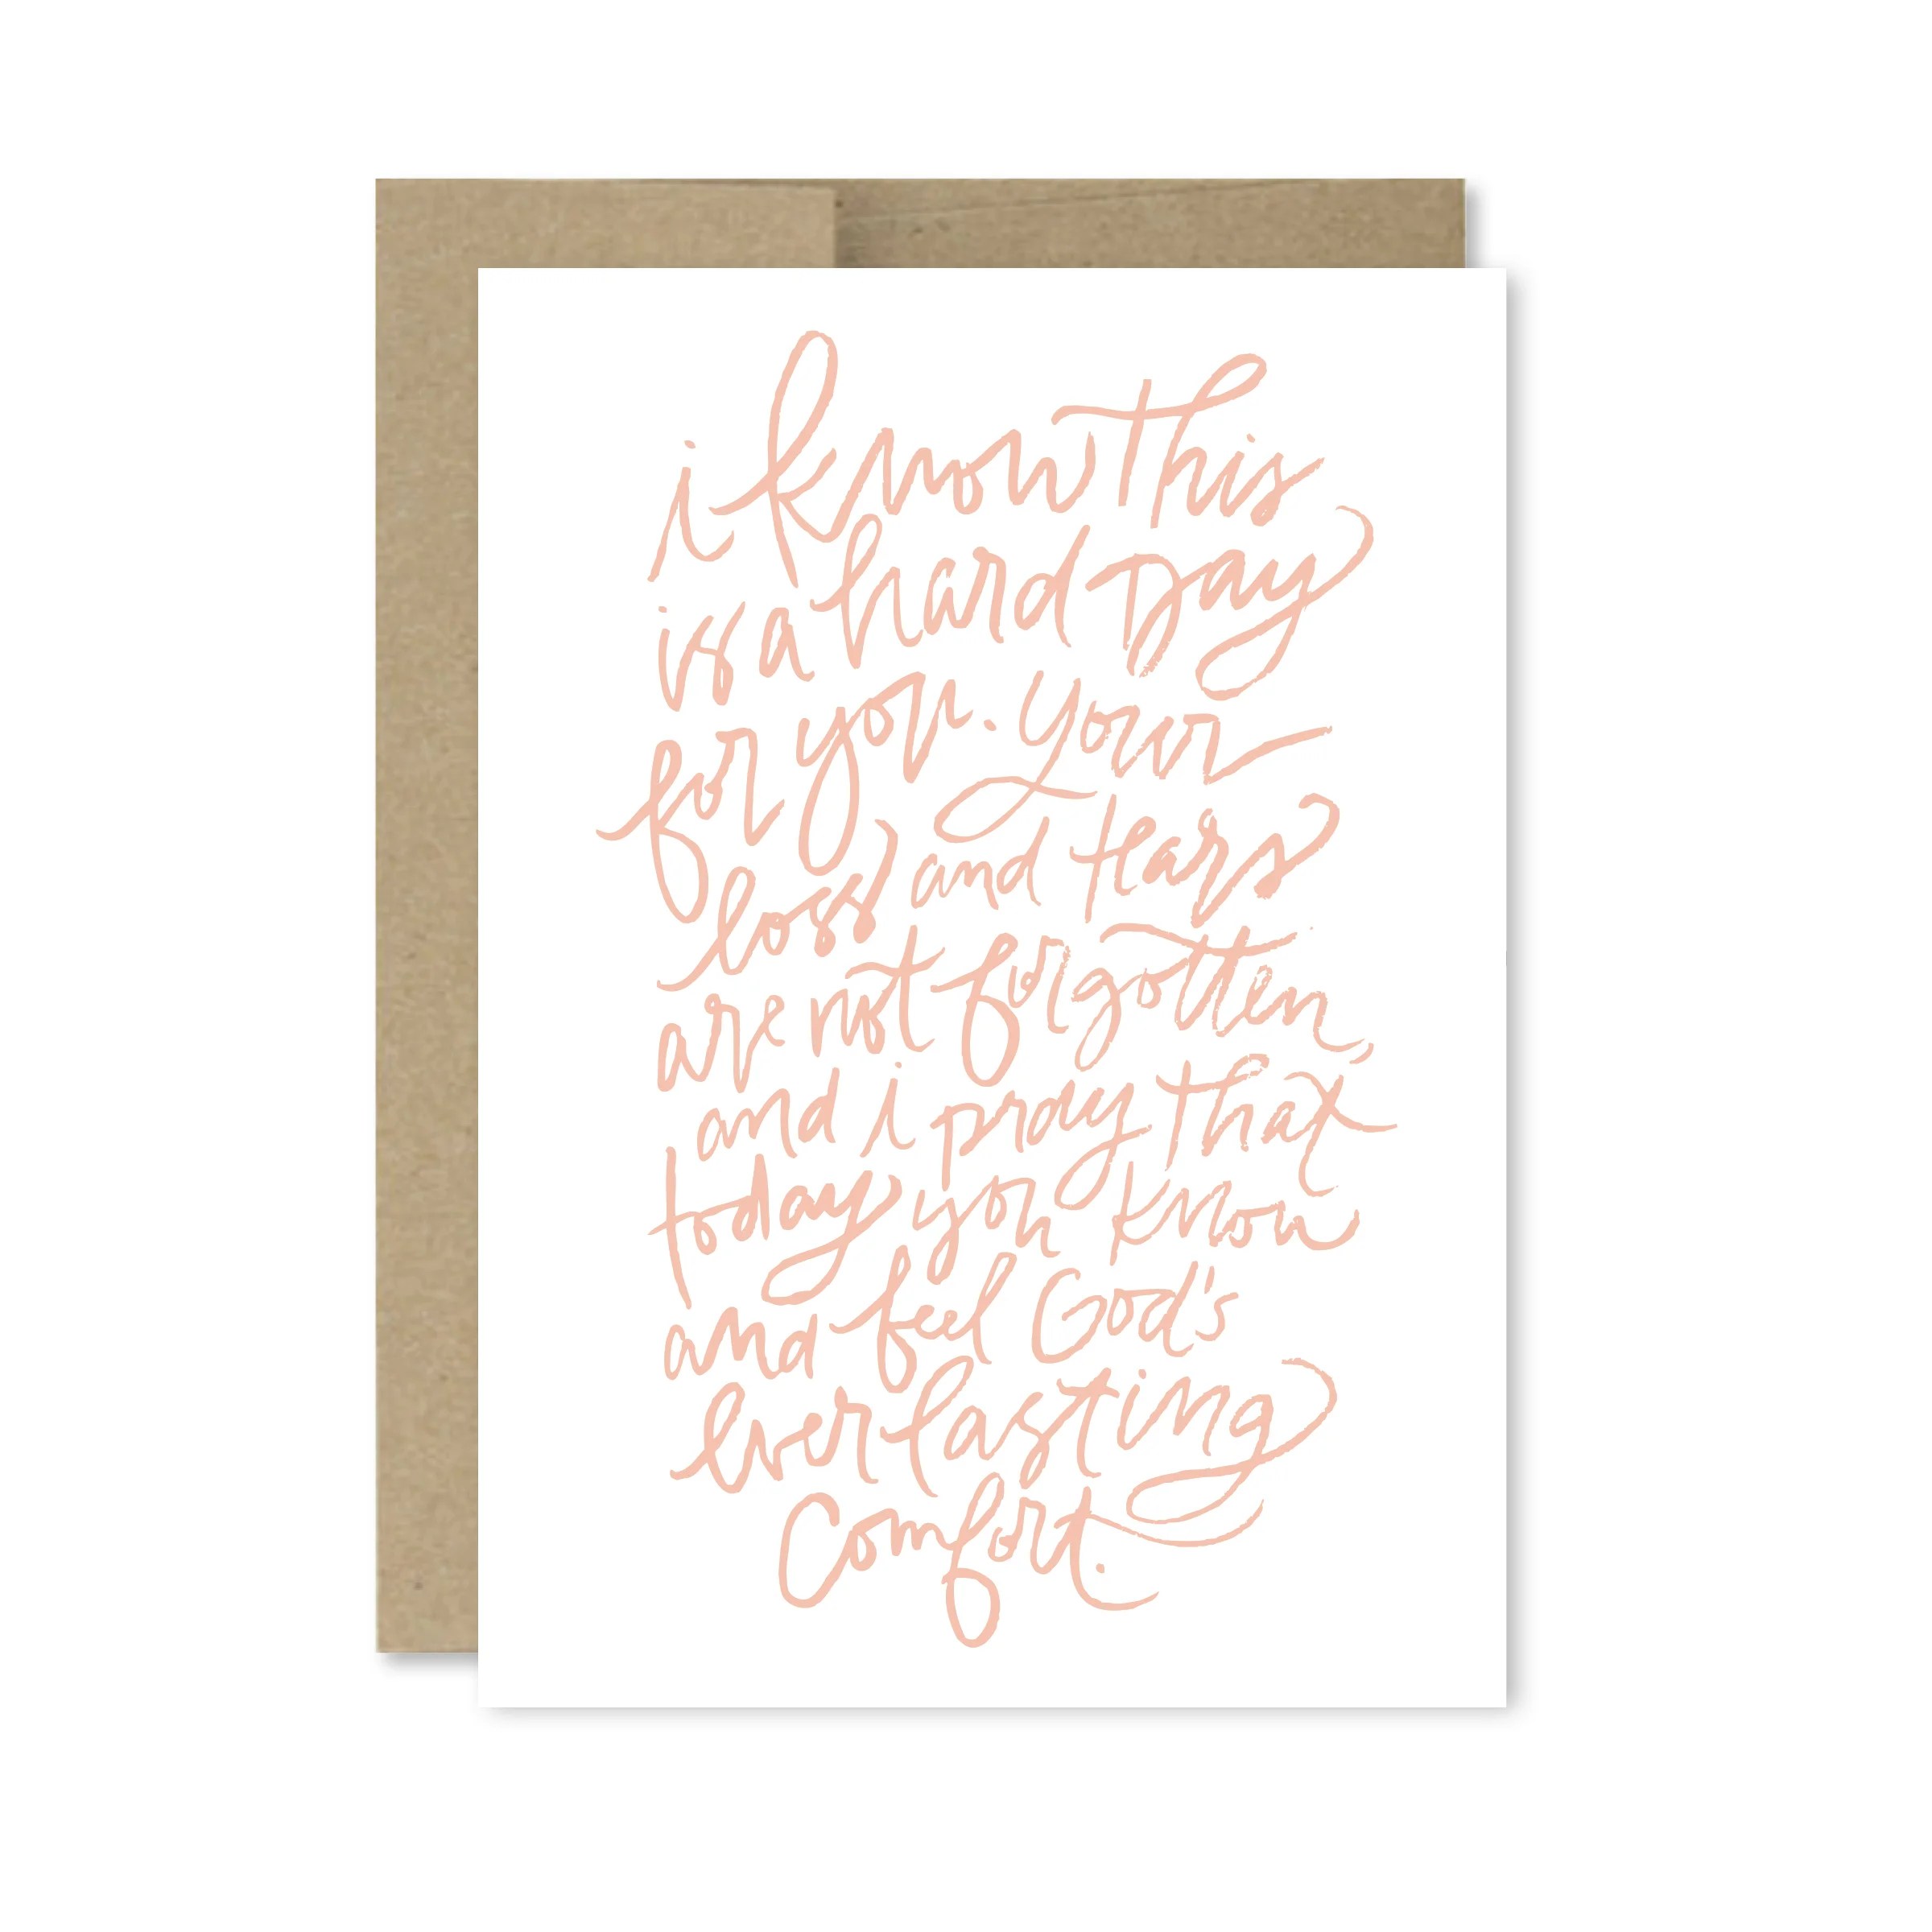 i know this
is a hard day
for you. your
loss and tears
are not forgotten,
and i pray that
today you know
and feel God's
everlasting
Comfort.